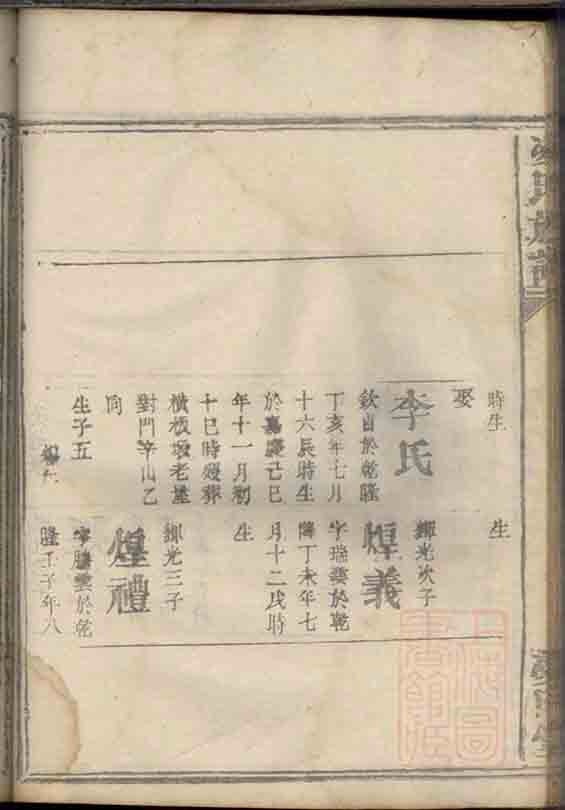 氏族譜
時生
娶
李氏
於乾隆
丁亥年七月
十六辰時生
於嘉慶己巳
年十一月初
十巳時歿葬
橫板塅老屋
對門辛山乙
向
生子五
生
光次子
煌義
字瑞於乾
隆丁未年七
月十二戌時
生
光三子
煌禮
字騰雲於乾
隆壬子年八
堂
上海圖
書館藏